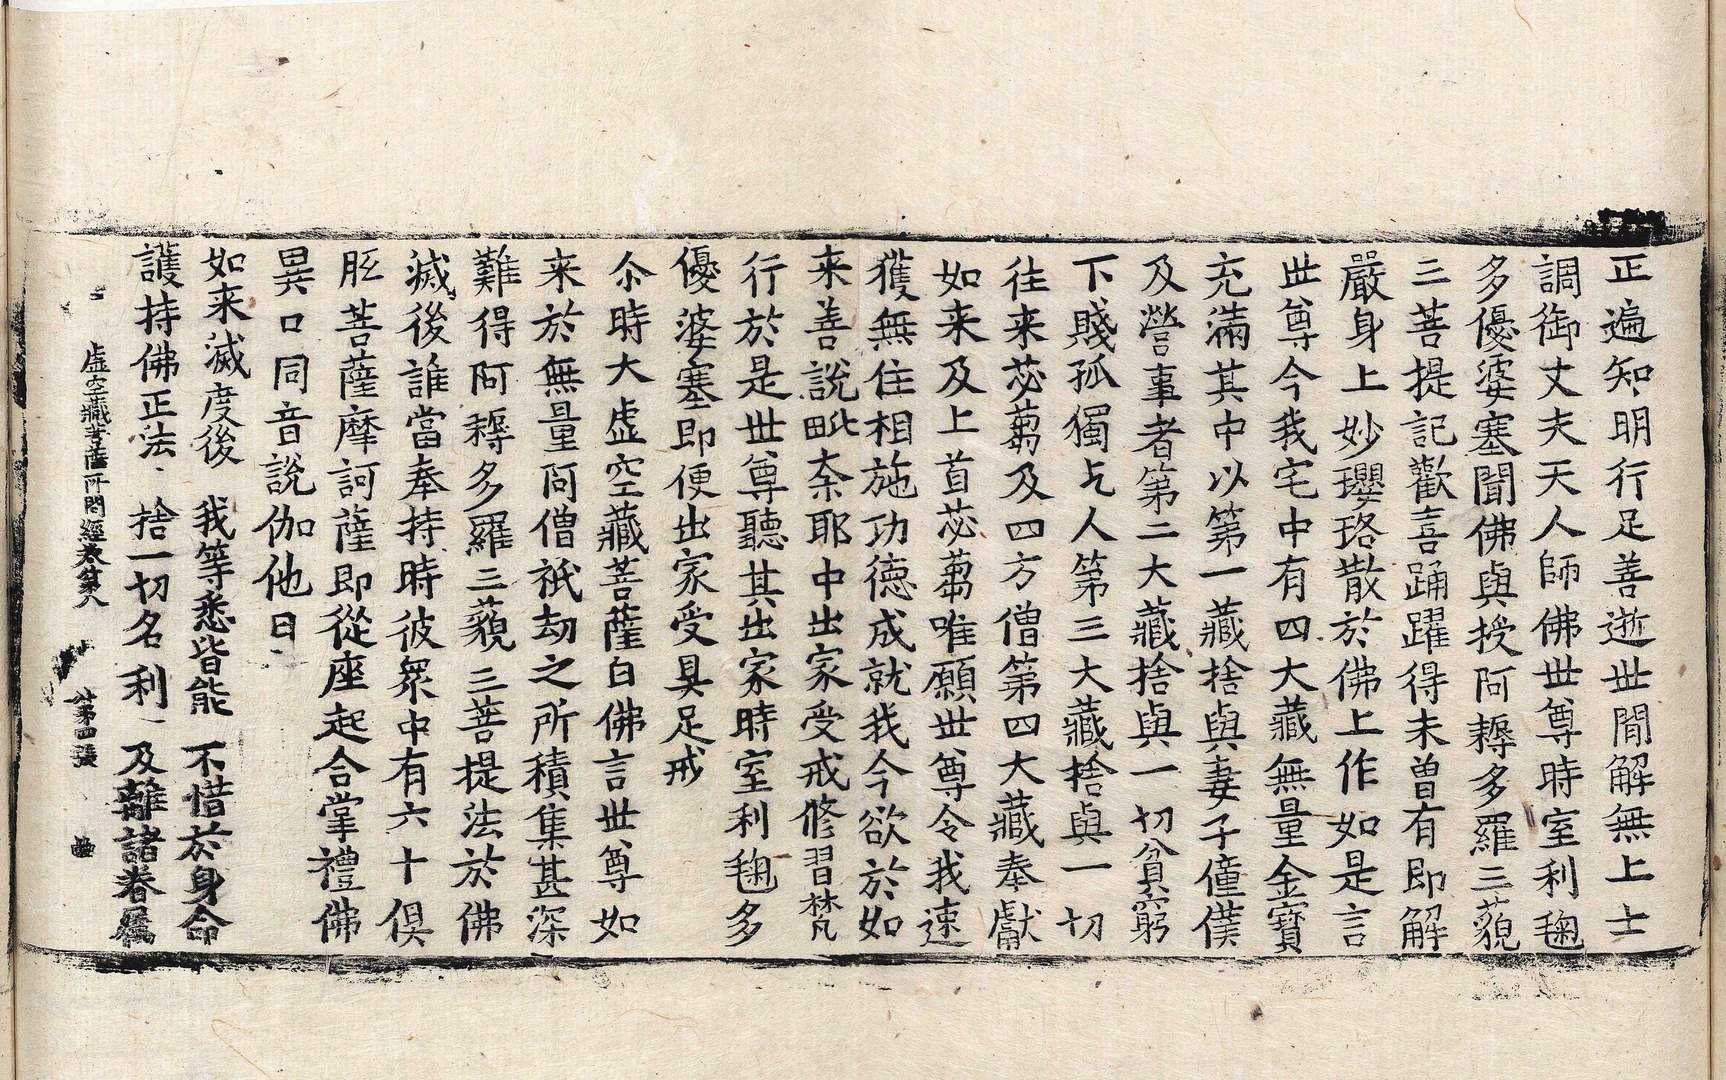 正遍知明行足善逝世間解無上士
調御丈夫天人師佛世尊時室利毱
多優婆塞聞佛與授阿耨多羅三藐
三菩提記歡喜踊躍得未曾有即解
嚴身上妙瓔珞散於佛上作如是言
世尊今我宅中有四大藏無量金寶
充滿其中以第一藏捨與妻子僮僕
及營事者第二大藏捨與一切貧窮
下賤孤獨乞人第三大藏捨與一切
往来苾蒭及四方僧第四大藏奉獻
如来及上首苾蒭唯願世尊令我速
獲無住相施功德成就我今欲於如
来善說毗柰耶中出家受戒修習梵
行於是世尊聽其出家時室利毱多
優婆塞即便出家受具足戒
尒時大虛空藏菩薩白佛言世尊如
来於無量阿僧祇劫之所積集甚深
難得阿耨多羅三藐三菩提法於佛
滅後誰當奉持時彼眾中有六十俱
胝菩薩摩訶薩即從座起合掌禮佛
異口同音說伽他曰
如来滅度後　我等悉皆能　不惜於身命
護持佛正法　捨一切名利　及離諸眷屬
虛空藏菩薩所問經卷第八　第四張